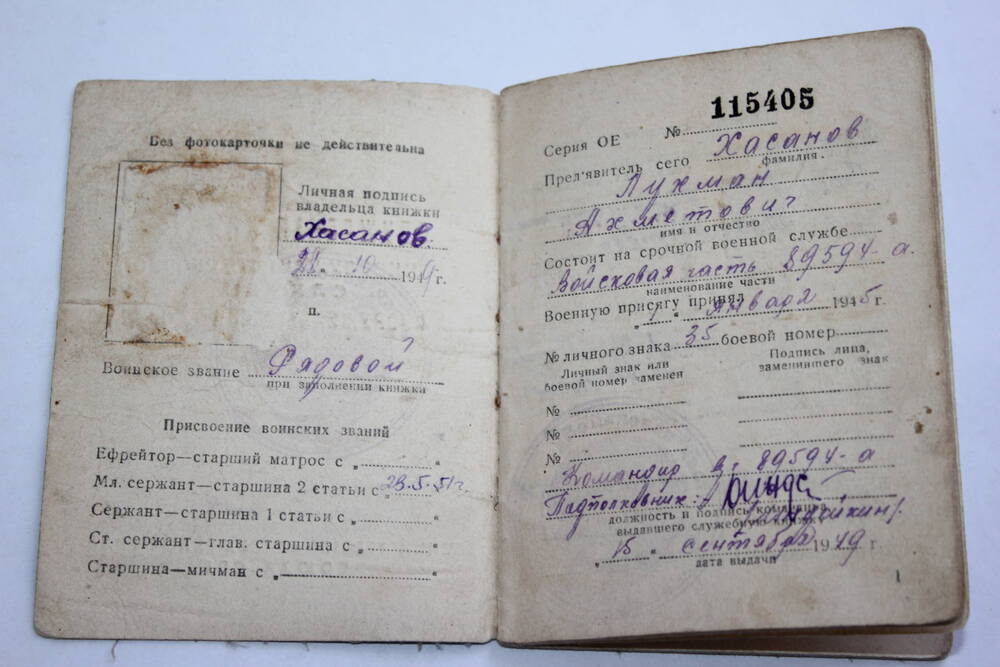 Без фотокарточки не действительна
Личная подпись
владельца книжки
Хасанов.
28 " 10 1949 г.
п.
Воинское звание Рядовой
при заполнении книжки
Присвоение воинских званий
Ефрейтор—старший матрос с „ “
Мл. сержант—старшина 2 статьи с „ 23.5.51г.
Сержант—старшина 1 статьи с „ “
Ст. сержант—глав. старшина с „ “
Старшина—мичман с „ “
115405
Серия ОЕ №
Пред'явитель сего Хасанов
фамилия.
Лухман
Ахметович
имя и отчество
Состоит на срочной военной службе
Войсковая часть 89594-а.
наименование части
Военную присягу принял
„ 1 “ января 1945 г.
№ личного знака 35 боевой номер
Личный знак или
боевой номер заменен
Подпись лица,
заменившего знак
№
№
№
Командир в/ч 89594-а
Подполковник:
должность и подпись командира,
выдавшего служебную книжку
„ 15 “ сентября 1949 г.
дата выдачи
1